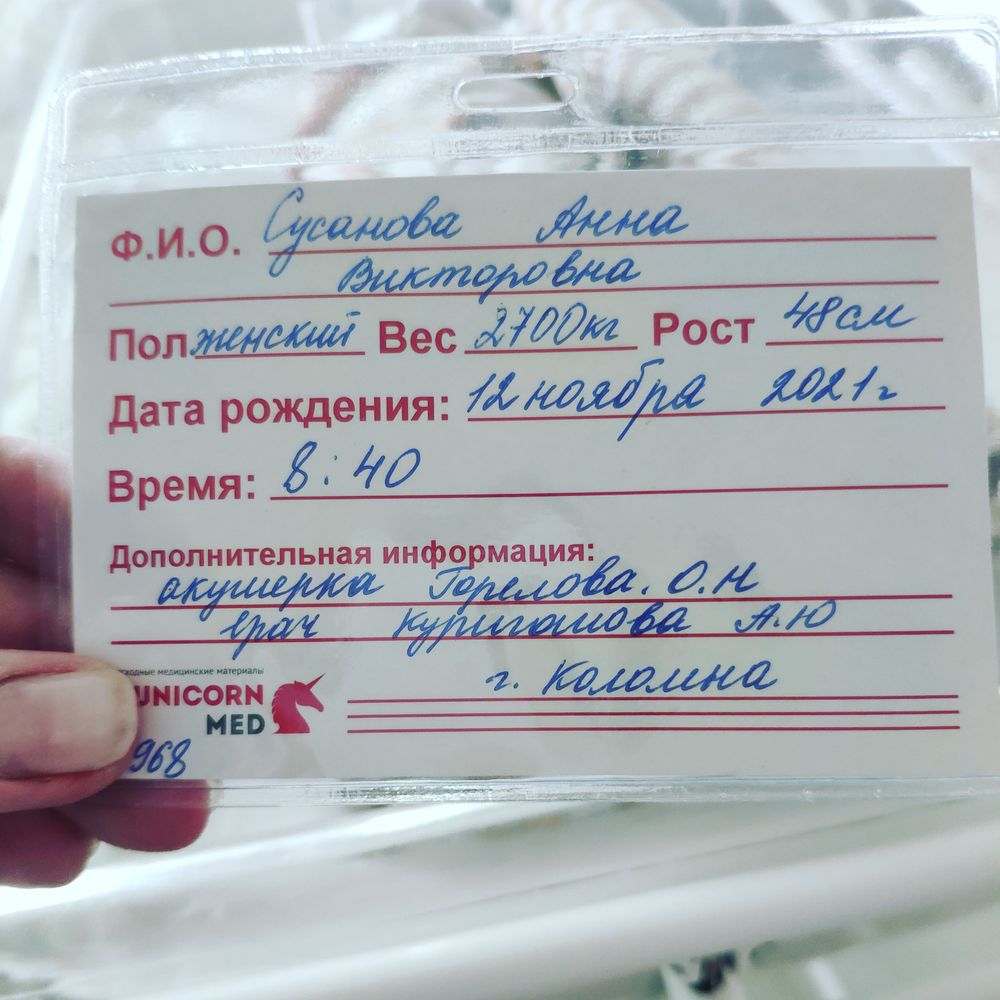 Ф.И.О. Сусанова Анна
Викторовна
Пол женский Вес 2700кг Рост 48см
Дата рождения: 12 ноября 2021г
Время: 8:40
Дополнительная информация:
акушерка Горелова. О.Н
врач А.Ю
г. Коломна
медицинские материалы
UNICORN
MED
968